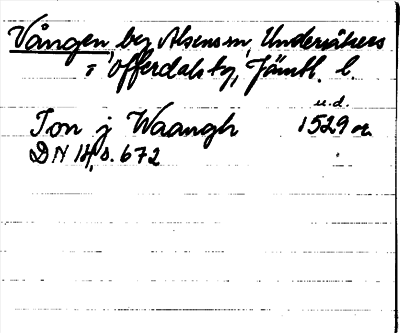 Vången, by, Alsens sn, Undersåkers
= Offerdals tg, Jämtl. l.
u.d.
Jon j Waangh 1529 or.
DN 14, s. 672